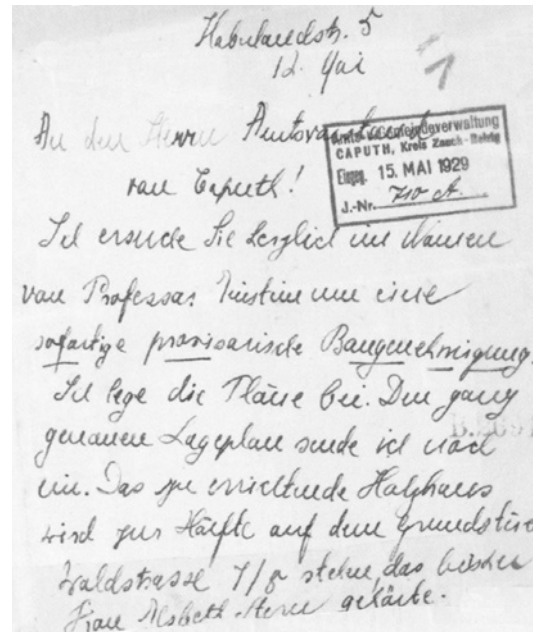 Haberlandstr. 5
12. Mai
1
An den Herrn Amtsvorstand
Amts- u. Gemeindeverwaltung
CAPUTH, Kreis Zauch-Belzig
Eingeg. 15. MAI 1929
J.-Nr. 710 A.
von Caputh!
Ich ersuche Sie herzlich im Namen
von Professor Einstein um eine
sofortige provisorische Baugenehmigung.
Ich lege die Pläne bei. Den ganz
genauen Lageplan sende ich noch
ein. Das zu errichtende Holzhaus
wird zur Hälfte auf dem Grundstück
Waldstrasse 7/8 stehen, das bisher
Frau Elsbeth Stern gehörte.